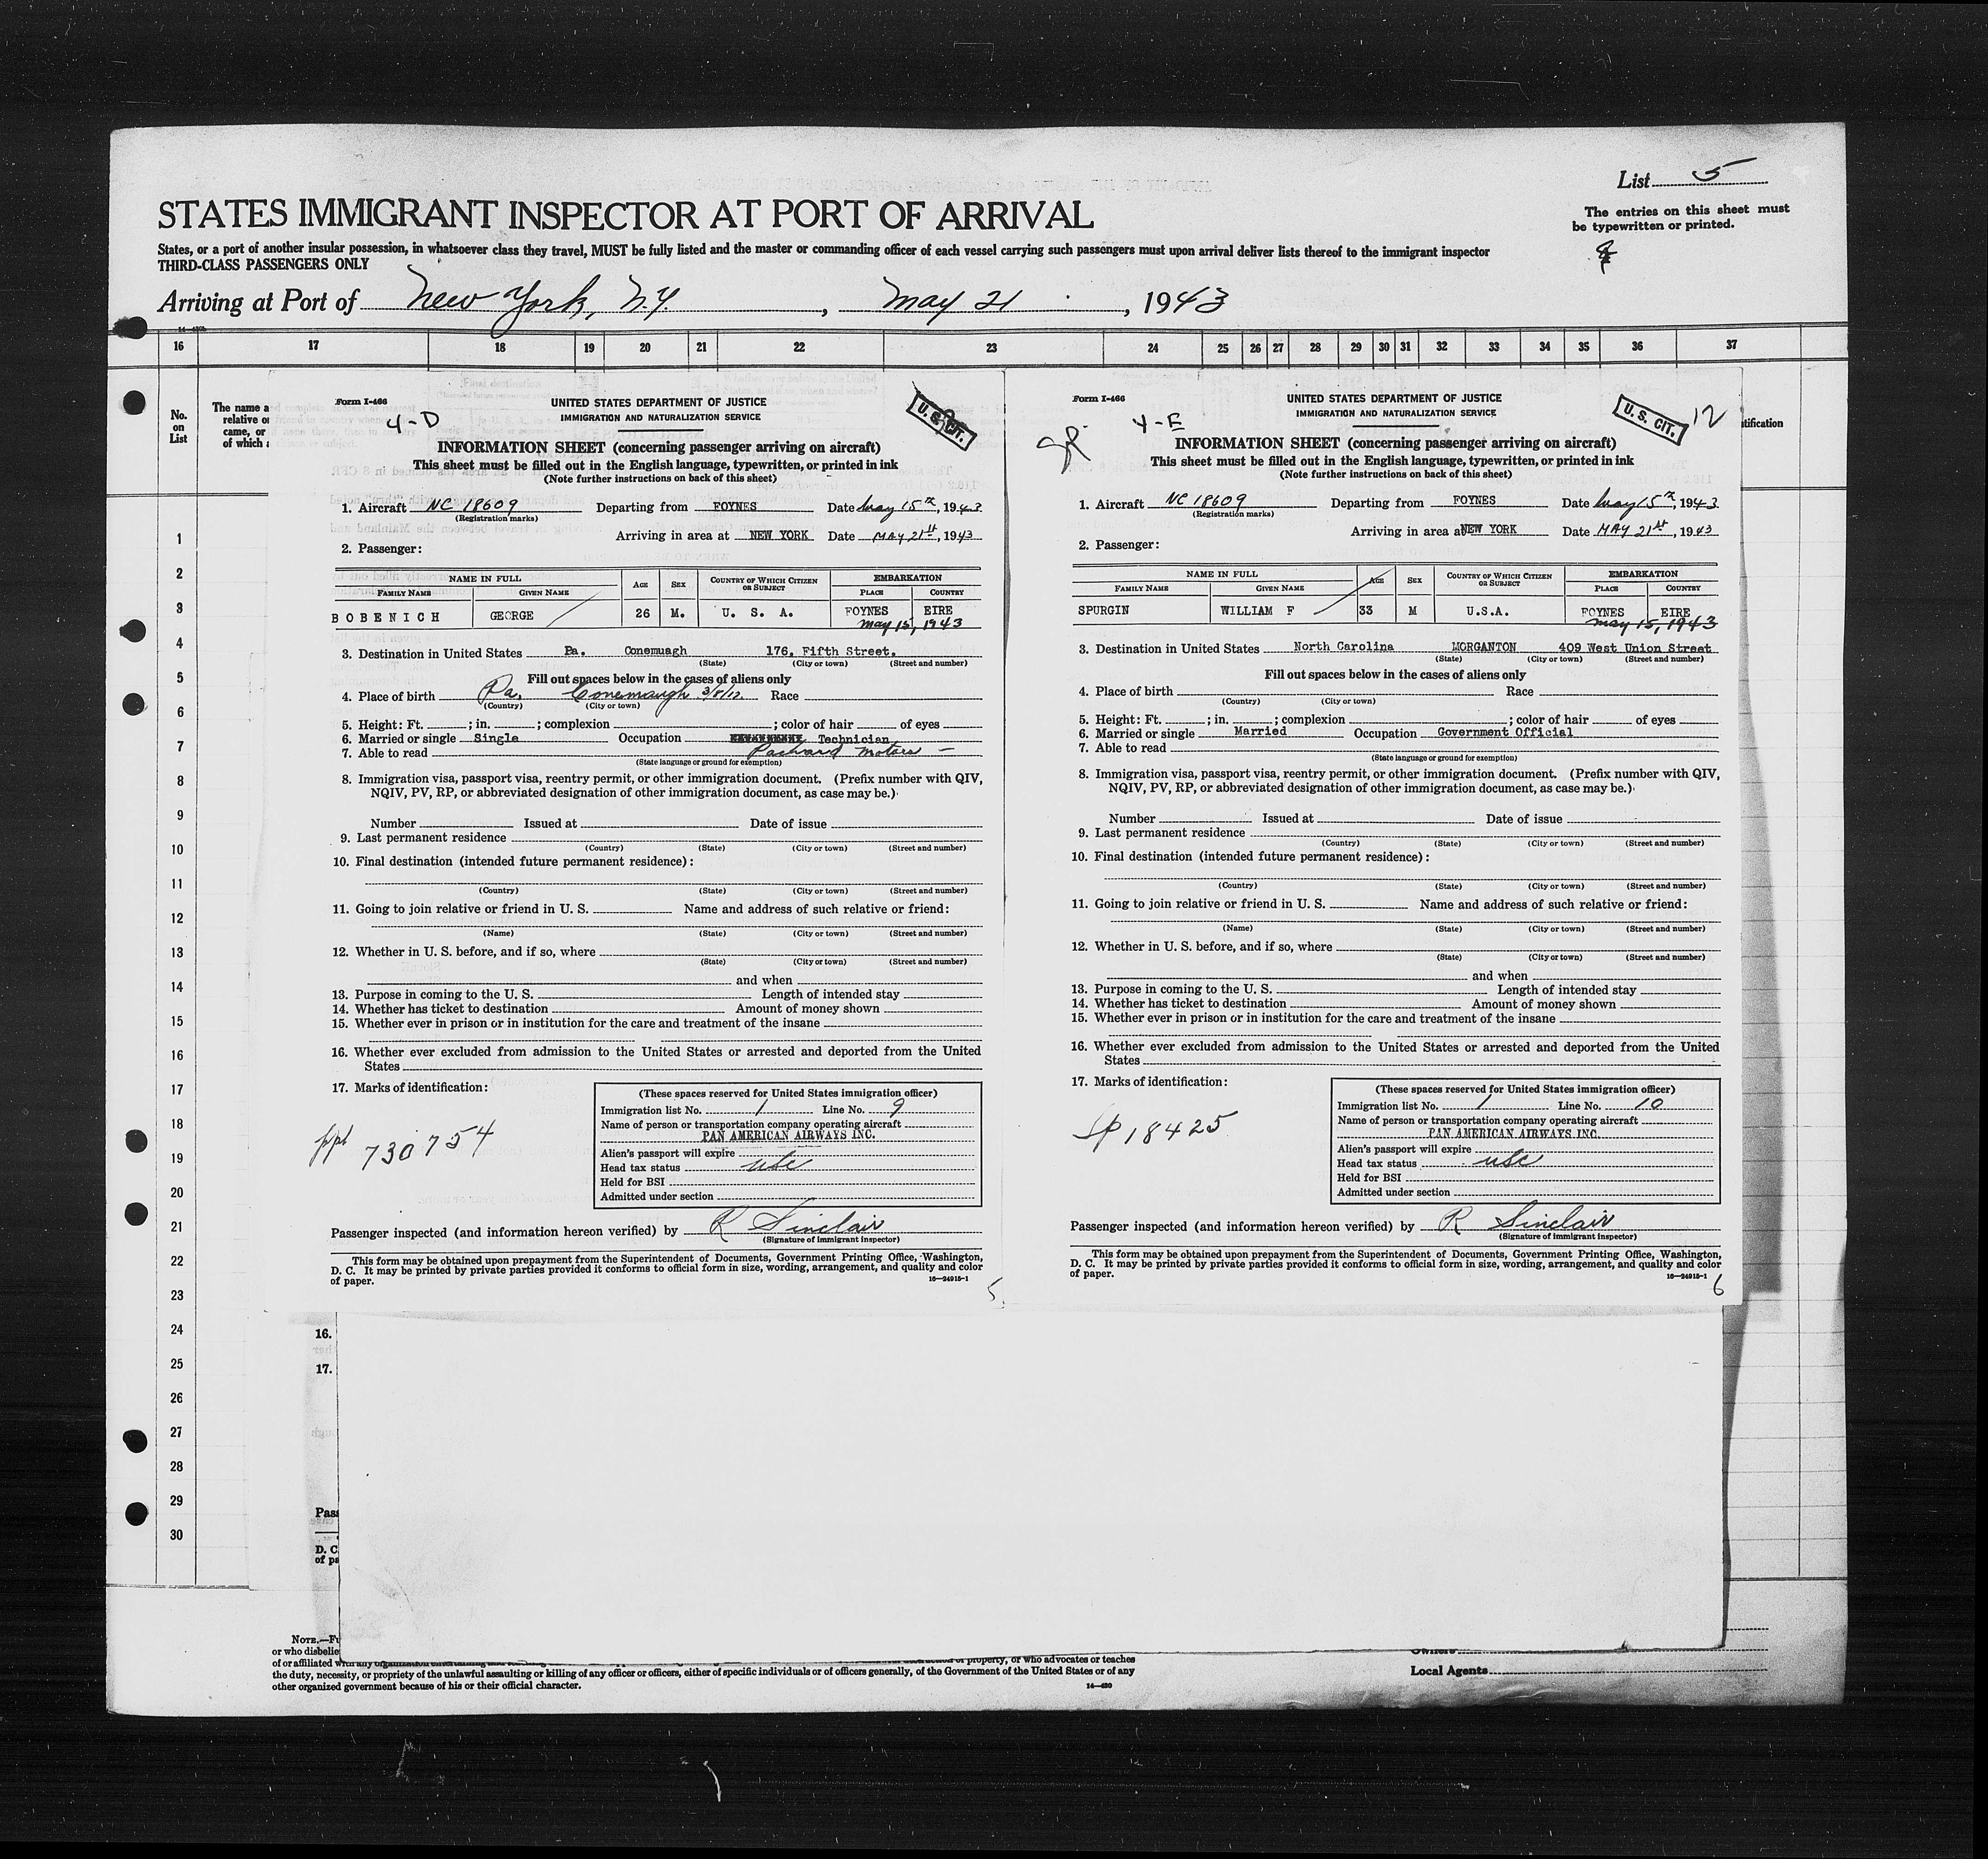 List 5
STATES IMMIGRANT INSPECTOR AT PORT OF ARRIVAL
The entries on this sheet must
be typewritten or printed.
States, or a port of another insular possession, in whatsoever class they travel, MUST be fully listed and the master or commanding officer of each vessel carrying such passengers must upon arrival deliver lists thereof to the immigrant inspector
THIRD-CLASS PASSENGERS ONLY
Arriving at Port of New York, N.Y., May 21, 1943
16 17 18 19 20 21 22 23 24 25 26 27 28 29 30 31 32 33 34 35 36 37
No.
on
List
The name a
relative o
came, or
of which a
tification
1
2
3
4
5
6
7
8
9
10
11
12
13
14
15
16
17
18
19
20
21
22
23
24
25
26
27
28
29
30
Form I-466
4-D
UNITED STATES DEPARTMENT OF JUSTICE
IMMIGRATION AND NATURALIZATION SERVICE
U. S. CIT.
INFORMATION SHEET (concerning passenger arriving on aircraft)
This sheet must be filled out in the English language, typewritten, or printed in ink
(Note further instructions on back of this sheet)
1. Aircraft NC 18609 Departing from FOYNES Date May 15th, 1943
(Registration marks)
Arriving in area at NEW YORK Date MAY 21st, 1943
2. Passenger:
NAME IN FULL AGE SEX COUNTRY OF WHICH CITIZEN OR SUBJECT EMBARKATION
FAMILY NAME GIVEN NAME PLACE COUNTRY
BOBENICH GEORGE 26 M. U. S. A. FOYNES EIRE
May 15, 1943
3. Destination in United States Pa. Conemuagh 176. Fifth Street.
(State) (City or town) (Street and number)
Fill out spaces below in the cases of aliens only
4. Place of birth Pa. Conemaugh 3/8/17. Race
(Country) (City or town)
5. Height: Ft. ; in. ; complexion ; color of hair of eyes
6. Married or single Single Occupation Technician
7. Able to read Packard Motors —
(State language or ground for exemption)
8. Immigration visa, passport visa, reentry permit, or other immigration document. (Prefix number with QIV,
NQIV, PV, RP, or abbreviated designation of other immigration document, as case may be.)
Number Issued at Date of issue
9. Last permanent residence
(Country) (State) (City or town) (Street and number)
10. Final destination (intended future permanent residence):
(Country) (State) (City or town) (Street and number)
11. Going to join relative or friend in U. S. Name and address of such relative or friend:
(Name) (State) (City or town) (Street and number)
12. Whether in U. S. before, and if so, where
(State) (City or town) (Street and number)
and when
13. Purpose in coming to the U. S. Length of intended stay
14. Whether has ticket to destination Amount of money shown
15. Whether ever in prison or in institution for the care and treatment of the insane
16. Whether ever excluded from admission to the United States or arrested and deported from the United
States
17. Marks of identification:
ppt 730754
(These spaces reserved for United States immigration officer)
Immigration list No. 1 Line No. 9
Name of person or transportation company operating aircraft
PAN AMERICAN AIRWAYS INC.
Alien's passport will expire
Head tax status usc
Held for BSI
Admitted under section
Passenger inspected (and information hereon verified) by R Sinclair
(Signature of immigrant inspector)
This form may be obtained upon prepayment from the Superintendent of Documents, Government Printing Office, Washington,
D. C. It may be printed by private parties provided it conforms to official form in size, wording, arrangement, and quality and color
of paper.
16—24915-1
5
Form I-466
4-E
UNITED STATES DEPARTMENT OF JUSTICE
IMMIGRATION AND NATURALIZATION SERVICE
U. S. CIT.
12
INFORMATION SHEET (concerning passenger arriving on aircraft)
This sheet must be filled out in the English language, typewritten, or printed in ink
(Note further instructions on back of this sheet)
1. Aircraft NC 18609 Departing from FOYNES Date May 15th, 1943
(Registration marks)
Arriving in area at NEW YORK Date MAY 21st, 1943
2. Passenger:
NAME IN FULL AGE SEX COUNTRY OF WHICH CITIZEN OR SUBJECT EMBARKATION
FAMILY NAME GIVEN NAME PLACE COUNTRY
SPURGIN WILLIAM F 33 M U.S.A. FOYNES EIRE
May 15, 1943
3. Destination in United States North Carolina MORGANTON 409 West Union Street
(State) (City or town) (Street and number)
Fill out spaces below in the cases of aliens only
4. Place of birth Race
(Country) (City or town)
5. Height: Ft. ; in. ; complexion ; color of hair of eyes
6. Married or single Married Occupation Government Official
7. Able to read
(State language or ground for exemption)
8. Immigration visa, passport visa, reentry permit, or other immigration document. (Prefix number with QIV,
NQIV, PV, RP, or abbreviated designation of other immigration document, as case may be.)
Number Issued at Date of issue
9. Last permanent residence
(Country) (State) (City or town) (Street and number)
10. Final destination (intended future permanent residence):
(Country) (State) (City or town) (Street and number)
11. Going to join relative or friend in U. S. Name and address of such relative or friend:
(Name) (State) (City or town) (Street and number)
12. Whether in U. S. before, and if so, where
(State) (City or town) (Street and number)
and when
13. Purpose in coming to the U. S. Length of intended stay
14. Whether has ticket to destination Amount of money shown
15. Whether ever in prison or in institution for the care and treatment of the insane
16. Whether ever excluded from admission to the United States or arrested and deported from the United
States
17. Marks of identification:
Sp 18425
(These spaces reserved for United States immigration officer)
Immigration list No. 1 Line No. 10
Name of person or transportation company operating aircraft
PAN AMERICAN AIRWAYS INC.
Alien's passport will expire
Head tax status usc
Held for BSI
Admitted under section
Passenger inspected (and information hereon verified) by R Sinclair
(Signature of immigrant inspector)
This form may be obtained upon prepayment from the Superintendent of Documents, Government Printing Office, Washington,
D. C. It may be printed by private parties provided it conforms to official form in size, wording, arrangement, and quality and color
of paper.
16—24915-1
6
16.
17.
Pass
D. C
of pa
NOTE.—Fu
or who disbelie
property, or who advocates or teaches
of or affiliated with any organization
the duty, necessity, or propriety of the unlawful assaulting or killing of any officer or officers, either of specific individuals or of officers generally, of the Government of the United States or of any
other organized government because of his or their official character.
14—430
Owners
Local Agents